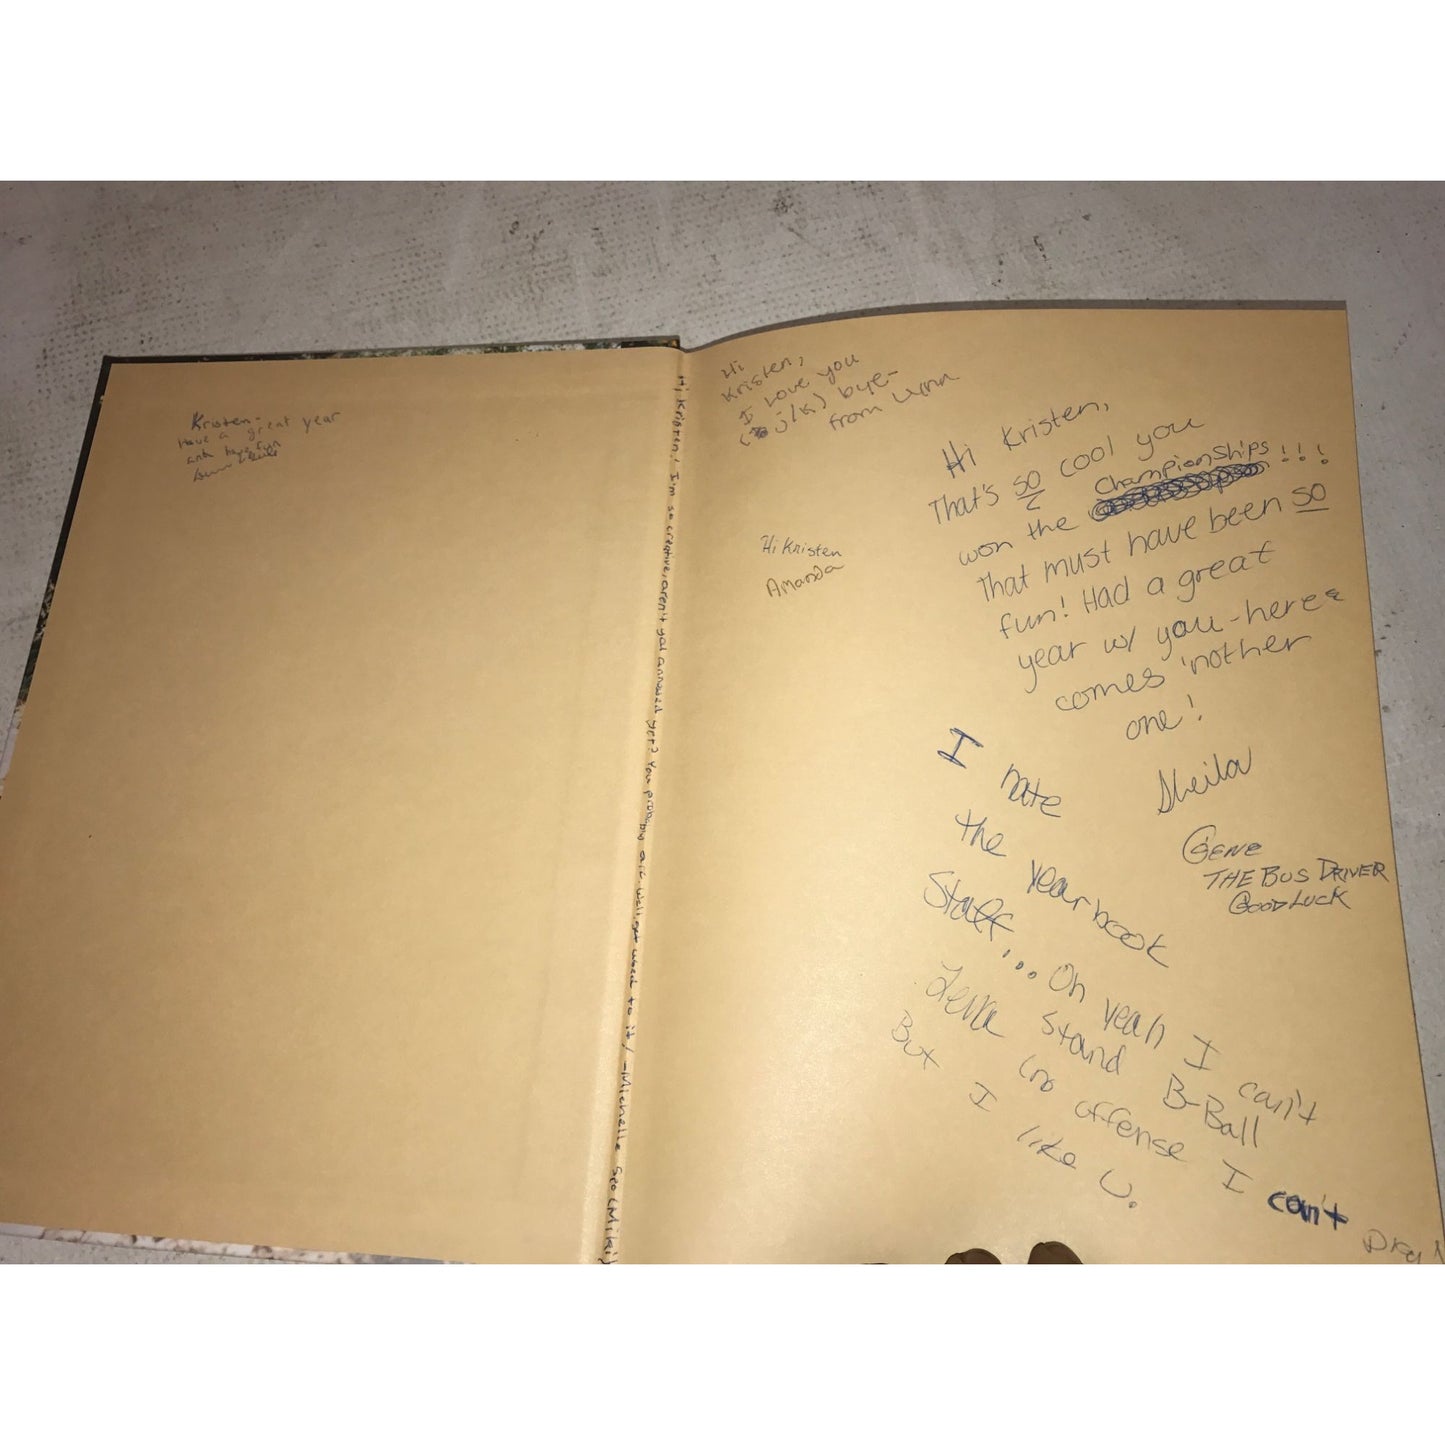 Kristen-
Have a great year
and have fun
Hi Kristen, I'm so creative, aren't you annoyed yet? You probably are. Well, get used to it! -Michelle Seo (Miki)
Hi
Kristen,
I Love you
(j/k) bye-
from
Hi Kristen
Amanda
Hi Kristen,
That's so cool you
won the Championships!!!
That must have been so
fun! Had a great
year w/ you - here
comes 'nother
one!
Sheila
GENE
THE BUS DRIVER
GOOD LUCK
I hate
the yearbook
Staff... Oh yeah I can't
stand B-Ball
(no offense I can't
But I like U.